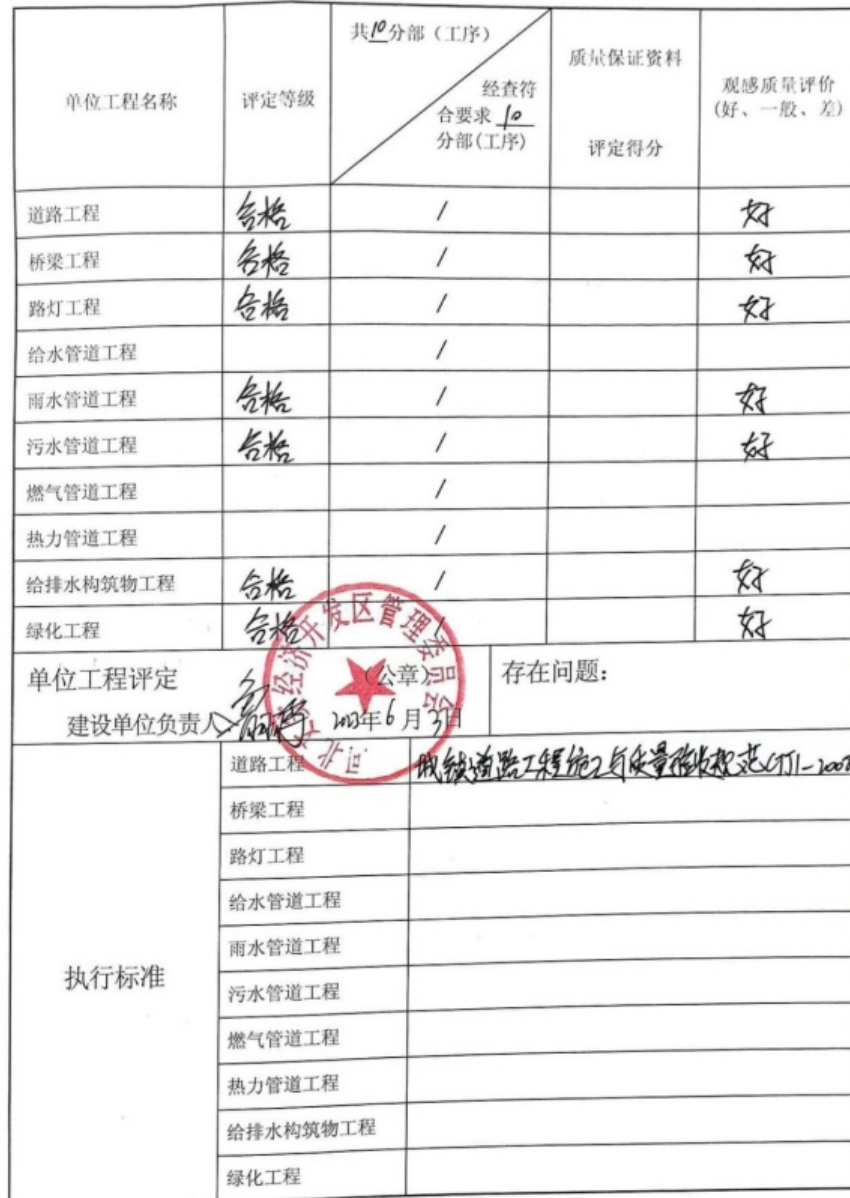 单位工程名称 评定等级 共10分部（工序） 经查符合要求10分部(工序) 质量保证资料 评定得分 观感质量评价 (好、一般、差)
道路工程 合格 / 好
桥梁工程 合格 / 好
路灯工程 合格 / 好
给水管道工程 /
雨水管道工程 合格 / 好
污水管道工程 合格 / 好
燃气管道工程 /
热力管道工程 /
给排水构筑物工程 合格 / 好
绿化工程 合格 / 好
单位工程评定 （公章） 存在问题：
建设单位负责人： 2023年6月3日
经济开发区管理委员会
河北
执行标准
道路工程 城镇道路工程施工与质量验收规范CJJ1-2008
桥梁工程
路灯工程
给水管道工程
雨水管道工程
污水管道工程
燃气管道工程
热力管道工程
给排水构筑物工程
绿化工程